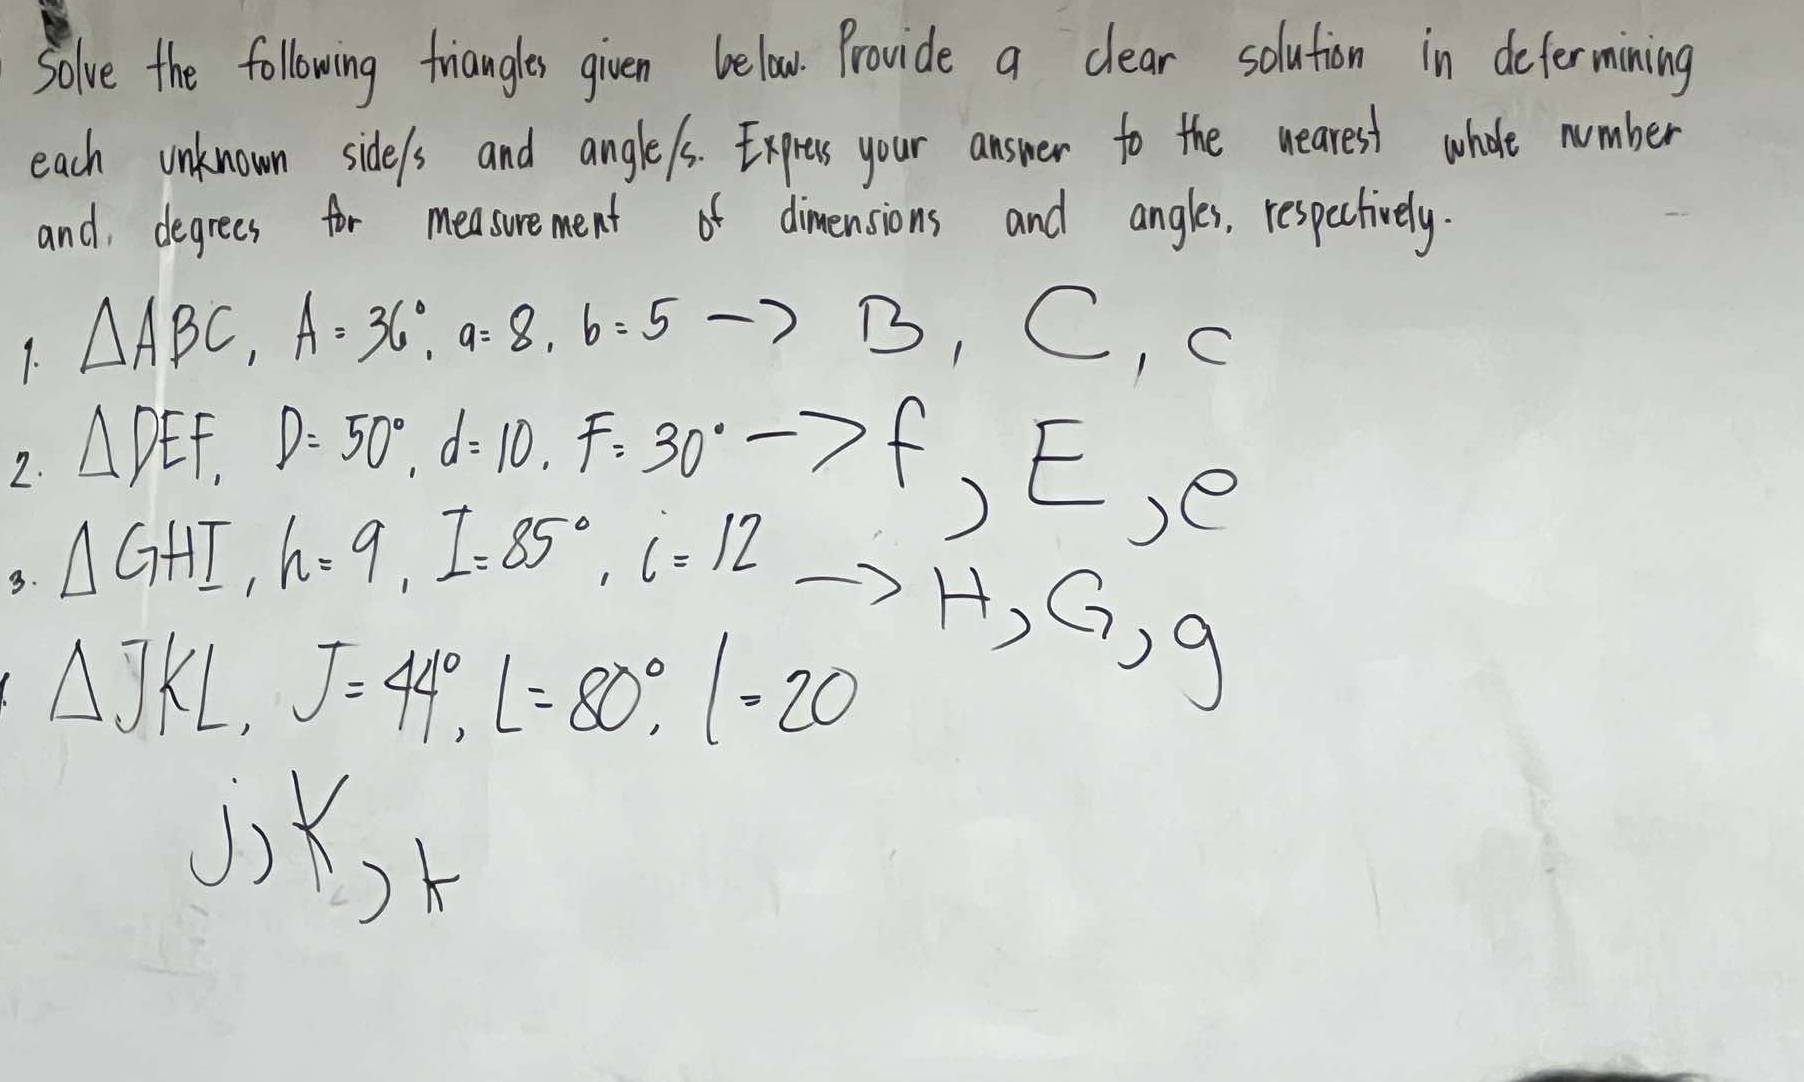 Solve the following triangles given below. Provide a clear solution in determining
each unknown side/s and angle/s. Express your answer to the nearest whole number
and degrees for measurement of dimensions and angles, respectively.
1. △ABC, A = 36°, a = 8, b = 5 -> B, C, c
2. △DEF, D = 50°, d = 10, F = 30° -> f, E, e
3. △GHI, h = 9, I = 85°, i = 12 -> H, G, g
△JKL, J = 44°, L = 80°, l = 20
j, K, k